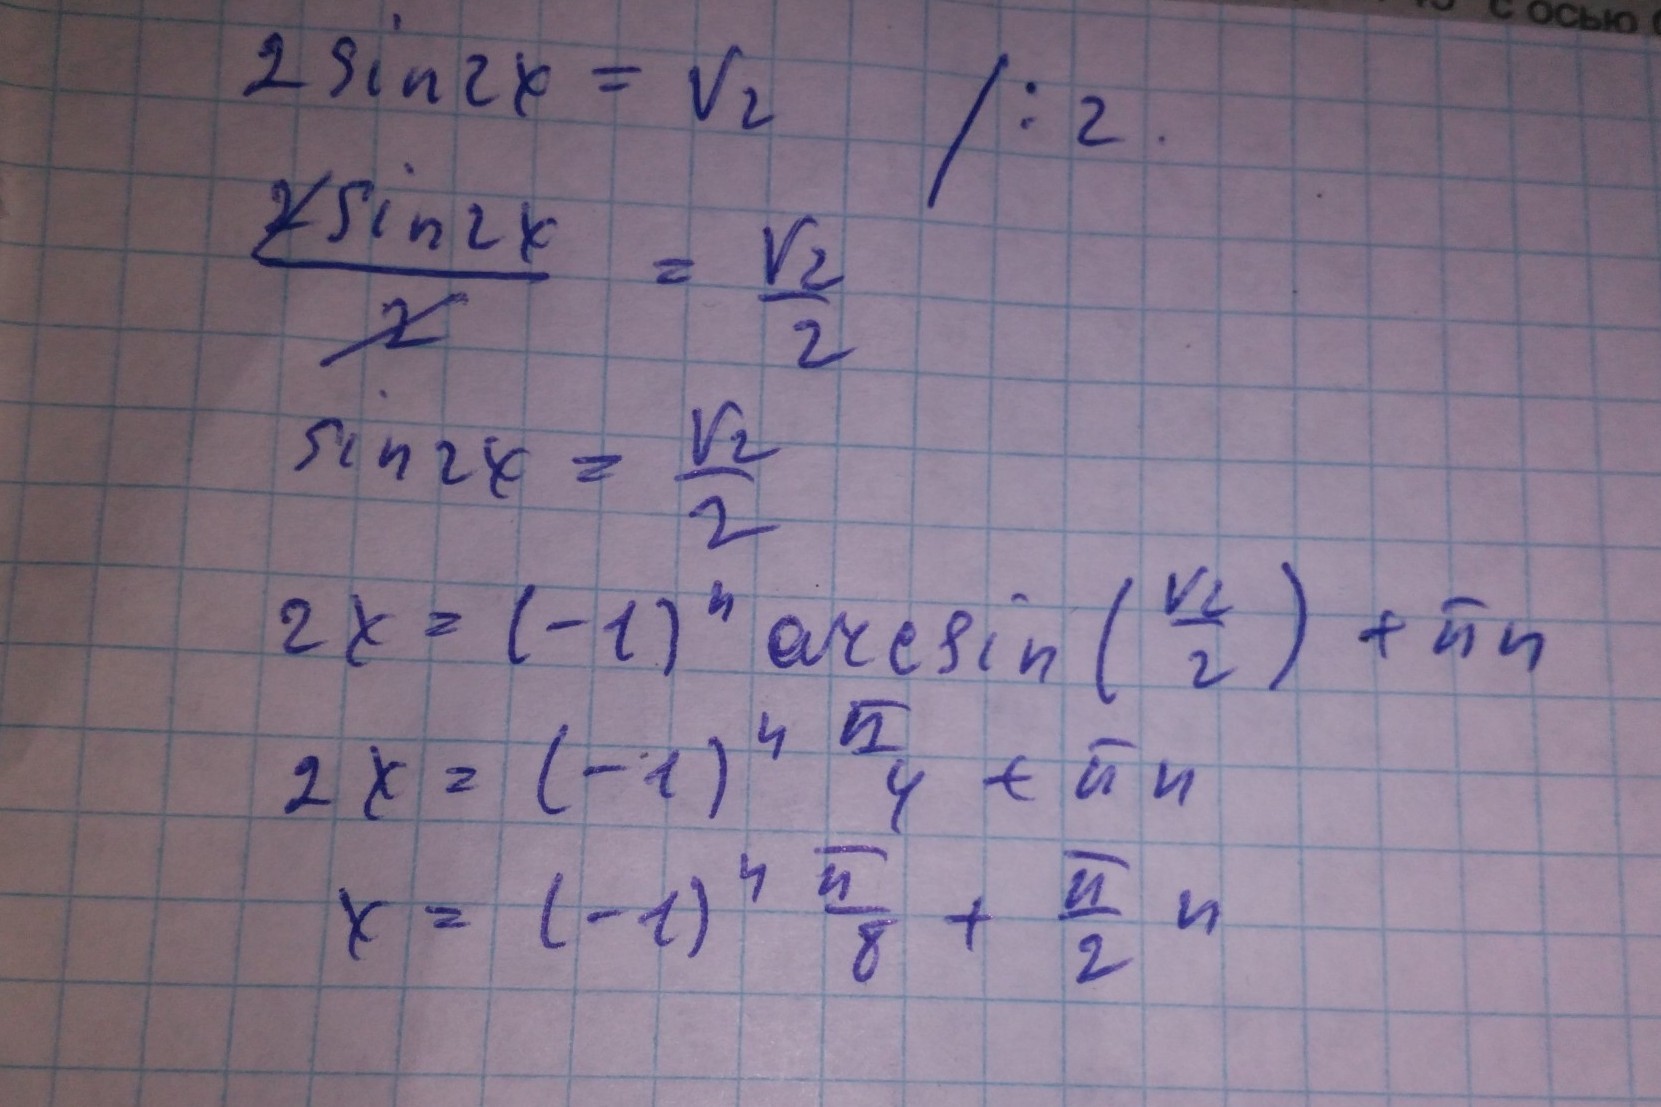 с осью
2 sin 2x = √2 / : 2.
2 sin 2x / 2 = √2 / 2
sin 2x = √2 / 2
2x = (-1)ⁿ arcsin (√2 / 2) + πn
2x = (-1)ⁿ π/4 + πn
x = (-1)ⁿ π/8 + π/2 n